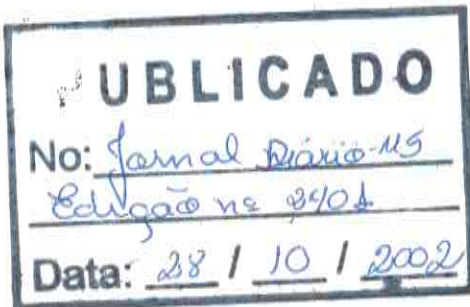 PUBLICADO
No: Jornal Diário-MS
Edição nº 2401
Data: 28 / 10 / 2002